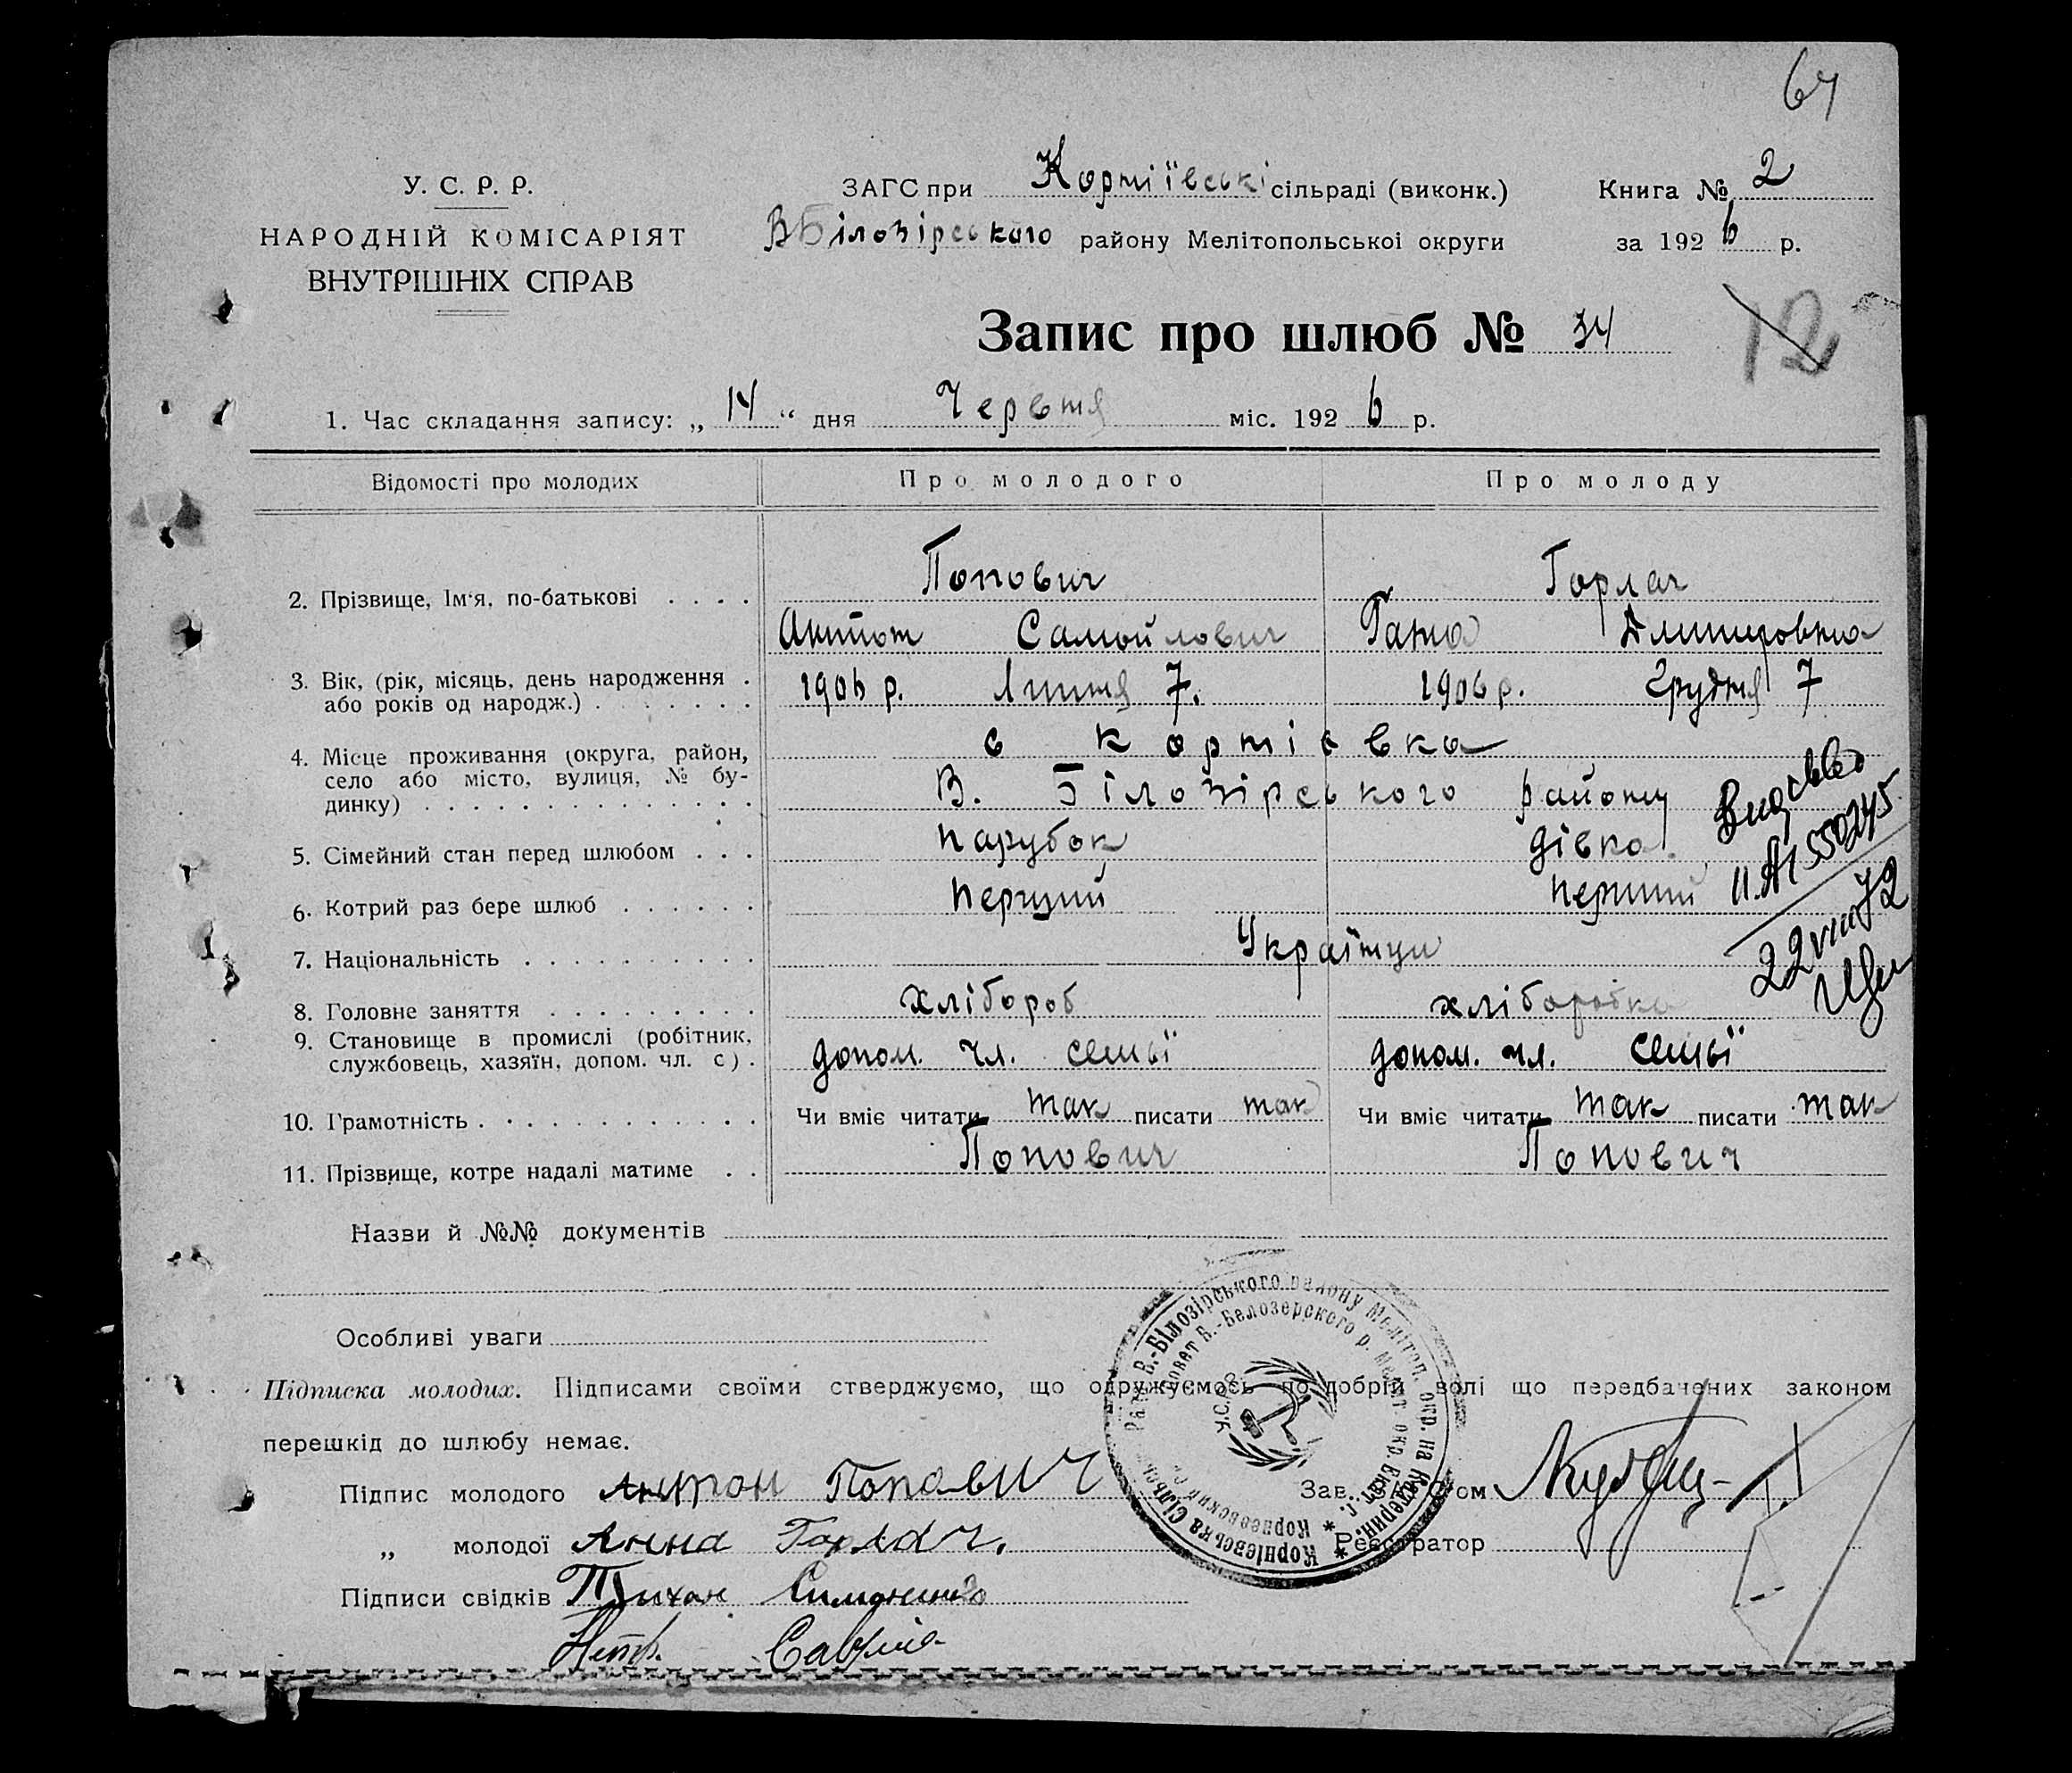 64
У. С. Р. Р.
НАРОДНІЙ КОМІСАРІЯТ
ВНУТРІШНІХ СПРАВ
ЗАГС при Корніївські сільраді (виконк.)
В Білозірського району Мелітопольської округи
Книга № 2
за 1926 р.
Запис про шлюб № 34
12
1. Час складання запису: „ 14 “ дня Червня міс. 1926 р.
Відомості про молодих Про молодого Про молоду
2. Прізвище, Ім‘я, по-батькові . . . . Попович Горлач
Антон Самойлович Ганна Дмитровна
3. Вік, (рік, місяць, день народження . 1905 р. Липня 7. 1906 р. Грудня 7
або років од народж.) . . . . . . .
4. Місце проживання (округа, район, с Корніівка
село або місто, вулиця, № бу- В. Білозірського району
динку) . . . . . . . . . . . . . .
5. Сімейний стан перед шлюбом . . . парубок дівка
6. Котрий раз бере шлюб . . . . . . перший перший
7. Національність . . . . . . . . . . Українци
8. Головне заняття . . . . . . . . . хлібороб хліборобка
9. Становище в промислі (робітник, допом. чл. семьї допом. чл. семьї
службовець, хазяїн, допом. чл. с) .
10. Грамотність . . . . . . . . . . . . Чи вміє читати так писати так Чи вміє читати так писати так
11. Прізвище, котре надалі матиме . . Попович Попович
550245
22 VIII 72
Назви й №№ документів
Особливі уваги
Підписка молодих. Підписами своїми стверджуємо, що одружуємось по добрій волі що передбачених законом
перешкід до шлюбу немає.
Підпис молодого Антон Попович
„ молодої Анна Горлач.
Підписи свідків Тихон
Зав. ом
Реєстратор
Корнієвська Сільська Рада В.-Білозірського району Меліто. окр. на Катерин.
Корнеевский В.-Белозерского р. Мелит. окр. Екат. г.
У.С.Р.Р.